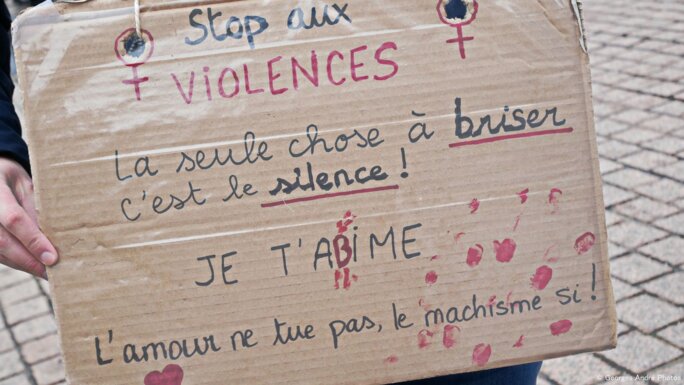 Stop aux
VIOLENCES
La seule chose à briser
c'est le silence !
JE T'ABiME
L'amour ne tue pas, le machisme si !
© Georges André Photos